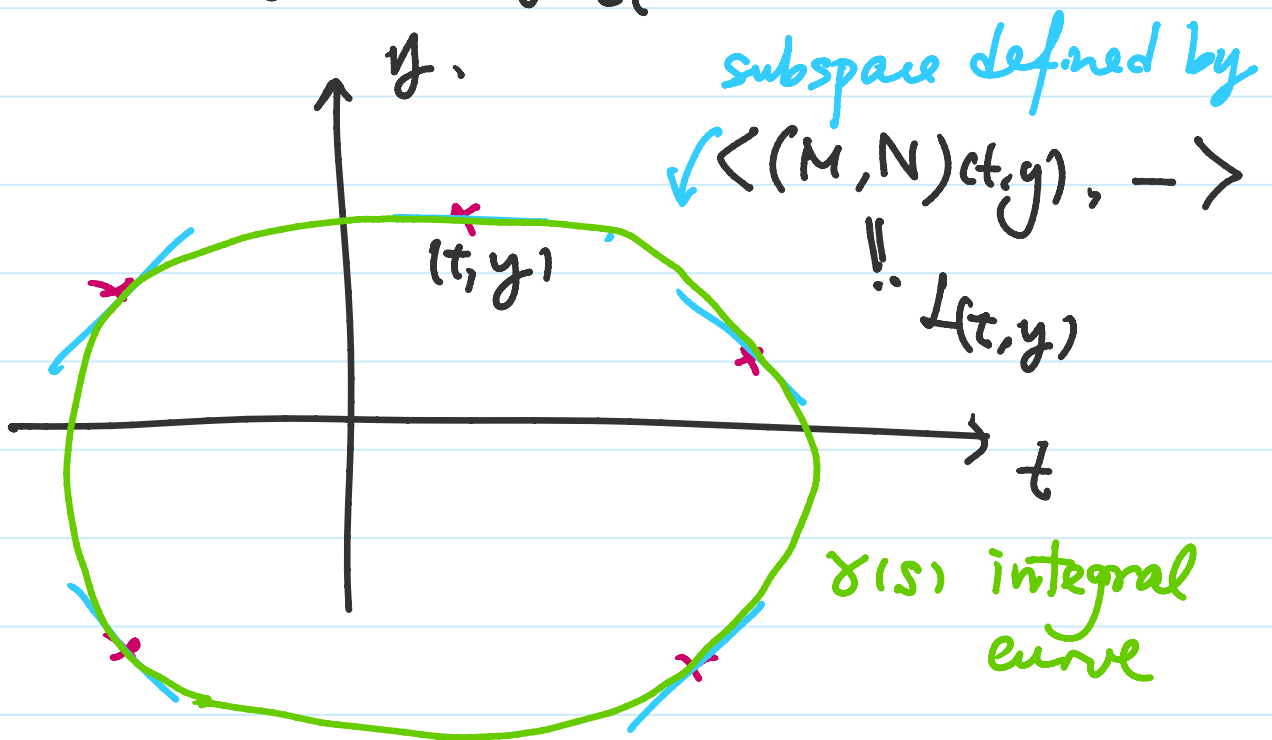 y.
subspace defined by
<(M,N)(t,y), ->
!!
(t,y)
L(t,y)
t
γ(s) integral
curve